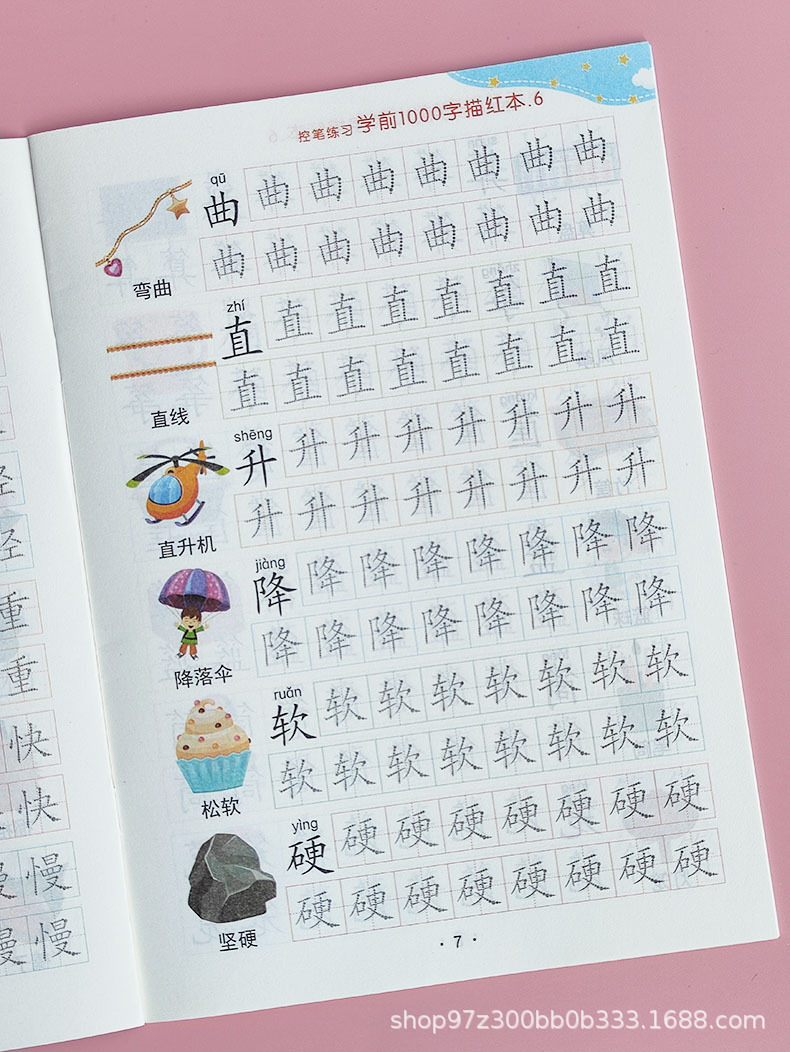 重
重
快
快
慢
慢
控笔练习 学前1000字描红本.6
qū
曲 曲 曲 曲 曲 曲 曲 曲
曲 曲 曲 曲 曲 曲 曲 曲
弯曲
zhí
直 直 直 直 直 直 直 直
直 直 直 直 直 直 直 直
直线
shēng
升 升 升 升 升 升 升 升
升 升 升 升 升 升 升 升
直升机
jiàng
降 降 降 降 降 降 降 降
降 降 降 降 降 降 降 降
降落伞
ruǎn
软 软 软 软 软 软 软 软
软 软 软 软 软 软 软 软
松软
yìng
硬 硬 硬 硬 硬 硬 硬 硬
硬 硬 硬 硬 硬 硬 硬 硬
坚硬
· 7 ·
shop97z300bb0b333.1688.com